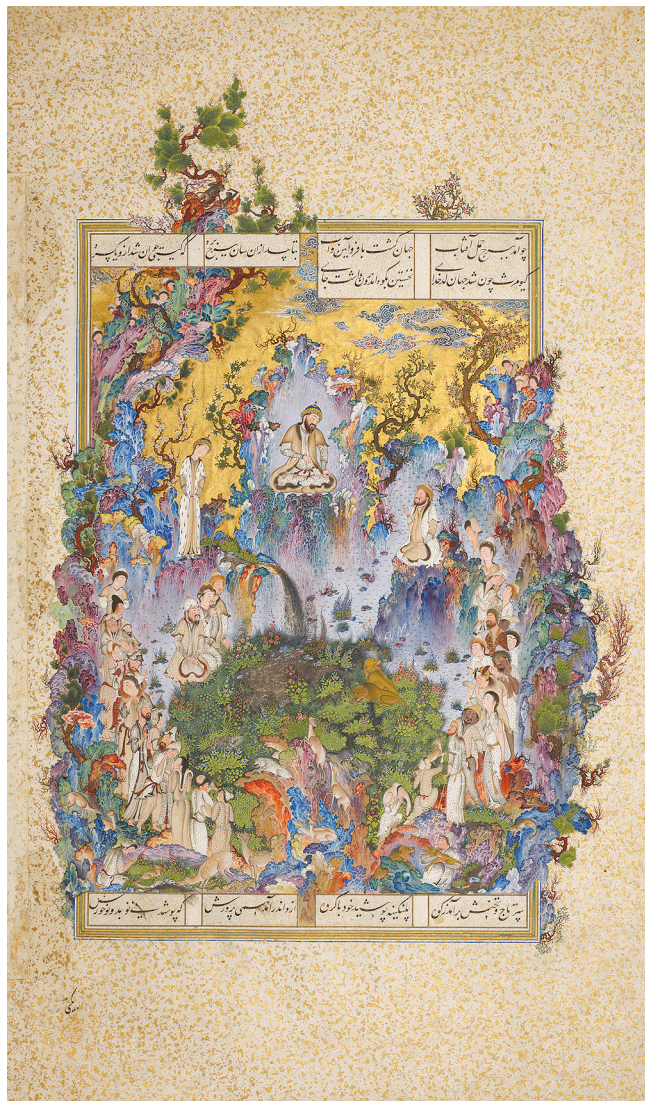 چو آمد ببرج حمل آفتاب جهان گشت با فر و آیین و آب
بتابید از آن سان ز برج بره که گیتی جوان شد ازو یکسره
کیومرث چون شد جهان کدخدای نخستین بکوه اندرون ساخت جای
سر تاج و تختش برآمد ز کوه پلنگینه پوشید خود با گروه
ازو اندر آمد همی پرورش که پوشیدنی نو بد و نو خورش